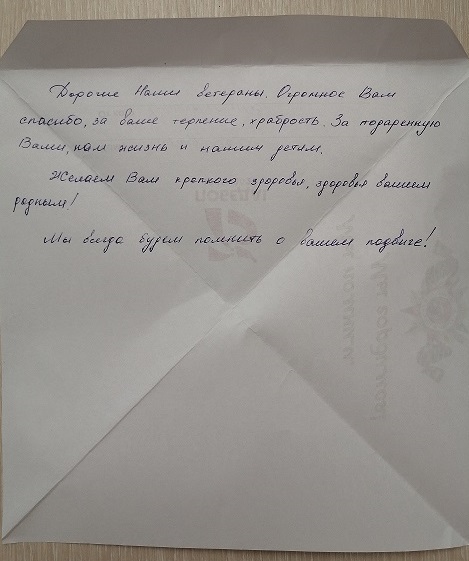 Дорогие Наши ветераны. Огромное Вам
спасибо, за ваше терпение, храбрость. За подаренную
Вами, нам жизнь и нашим детям.
Желаем Вам крепкого здоровья, здоровья вашим
родным!
Мы всегда будем помнить о вашем подвиге!